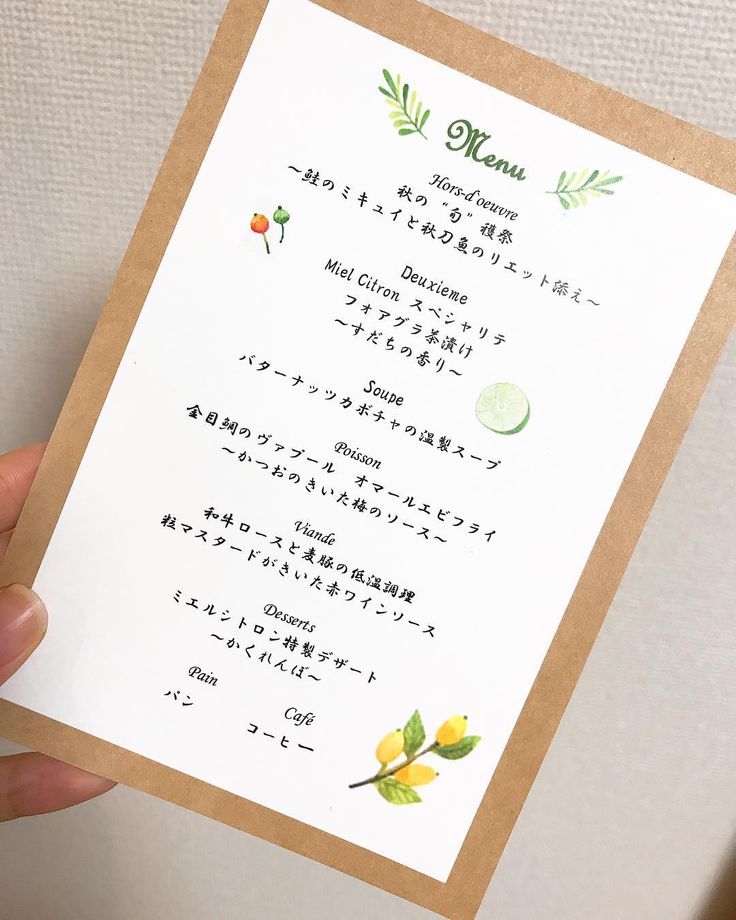 Menu
Hors-d'oeuvre
秋の“旬”穫祭
～鮭のミキュイと秋刀魚のリエット添え～
Deuxieme
Miel Citron スペシャリテ
フォアグラ茶漬け
～すだちの香り～
Soupe
バターナッツカボチャの温製スープ
Poisson
金目鯛のヴァプール オマールエビフライ
～かつおのきいた梅のソース～
Viande
和牛ロースと麦豚の低温調理
粒マスタードがきいた赤ワインソース
Desserts
ミエルシトロン特製デザート
～かくれんぼ～
Pain
パン
Café
コーヒー